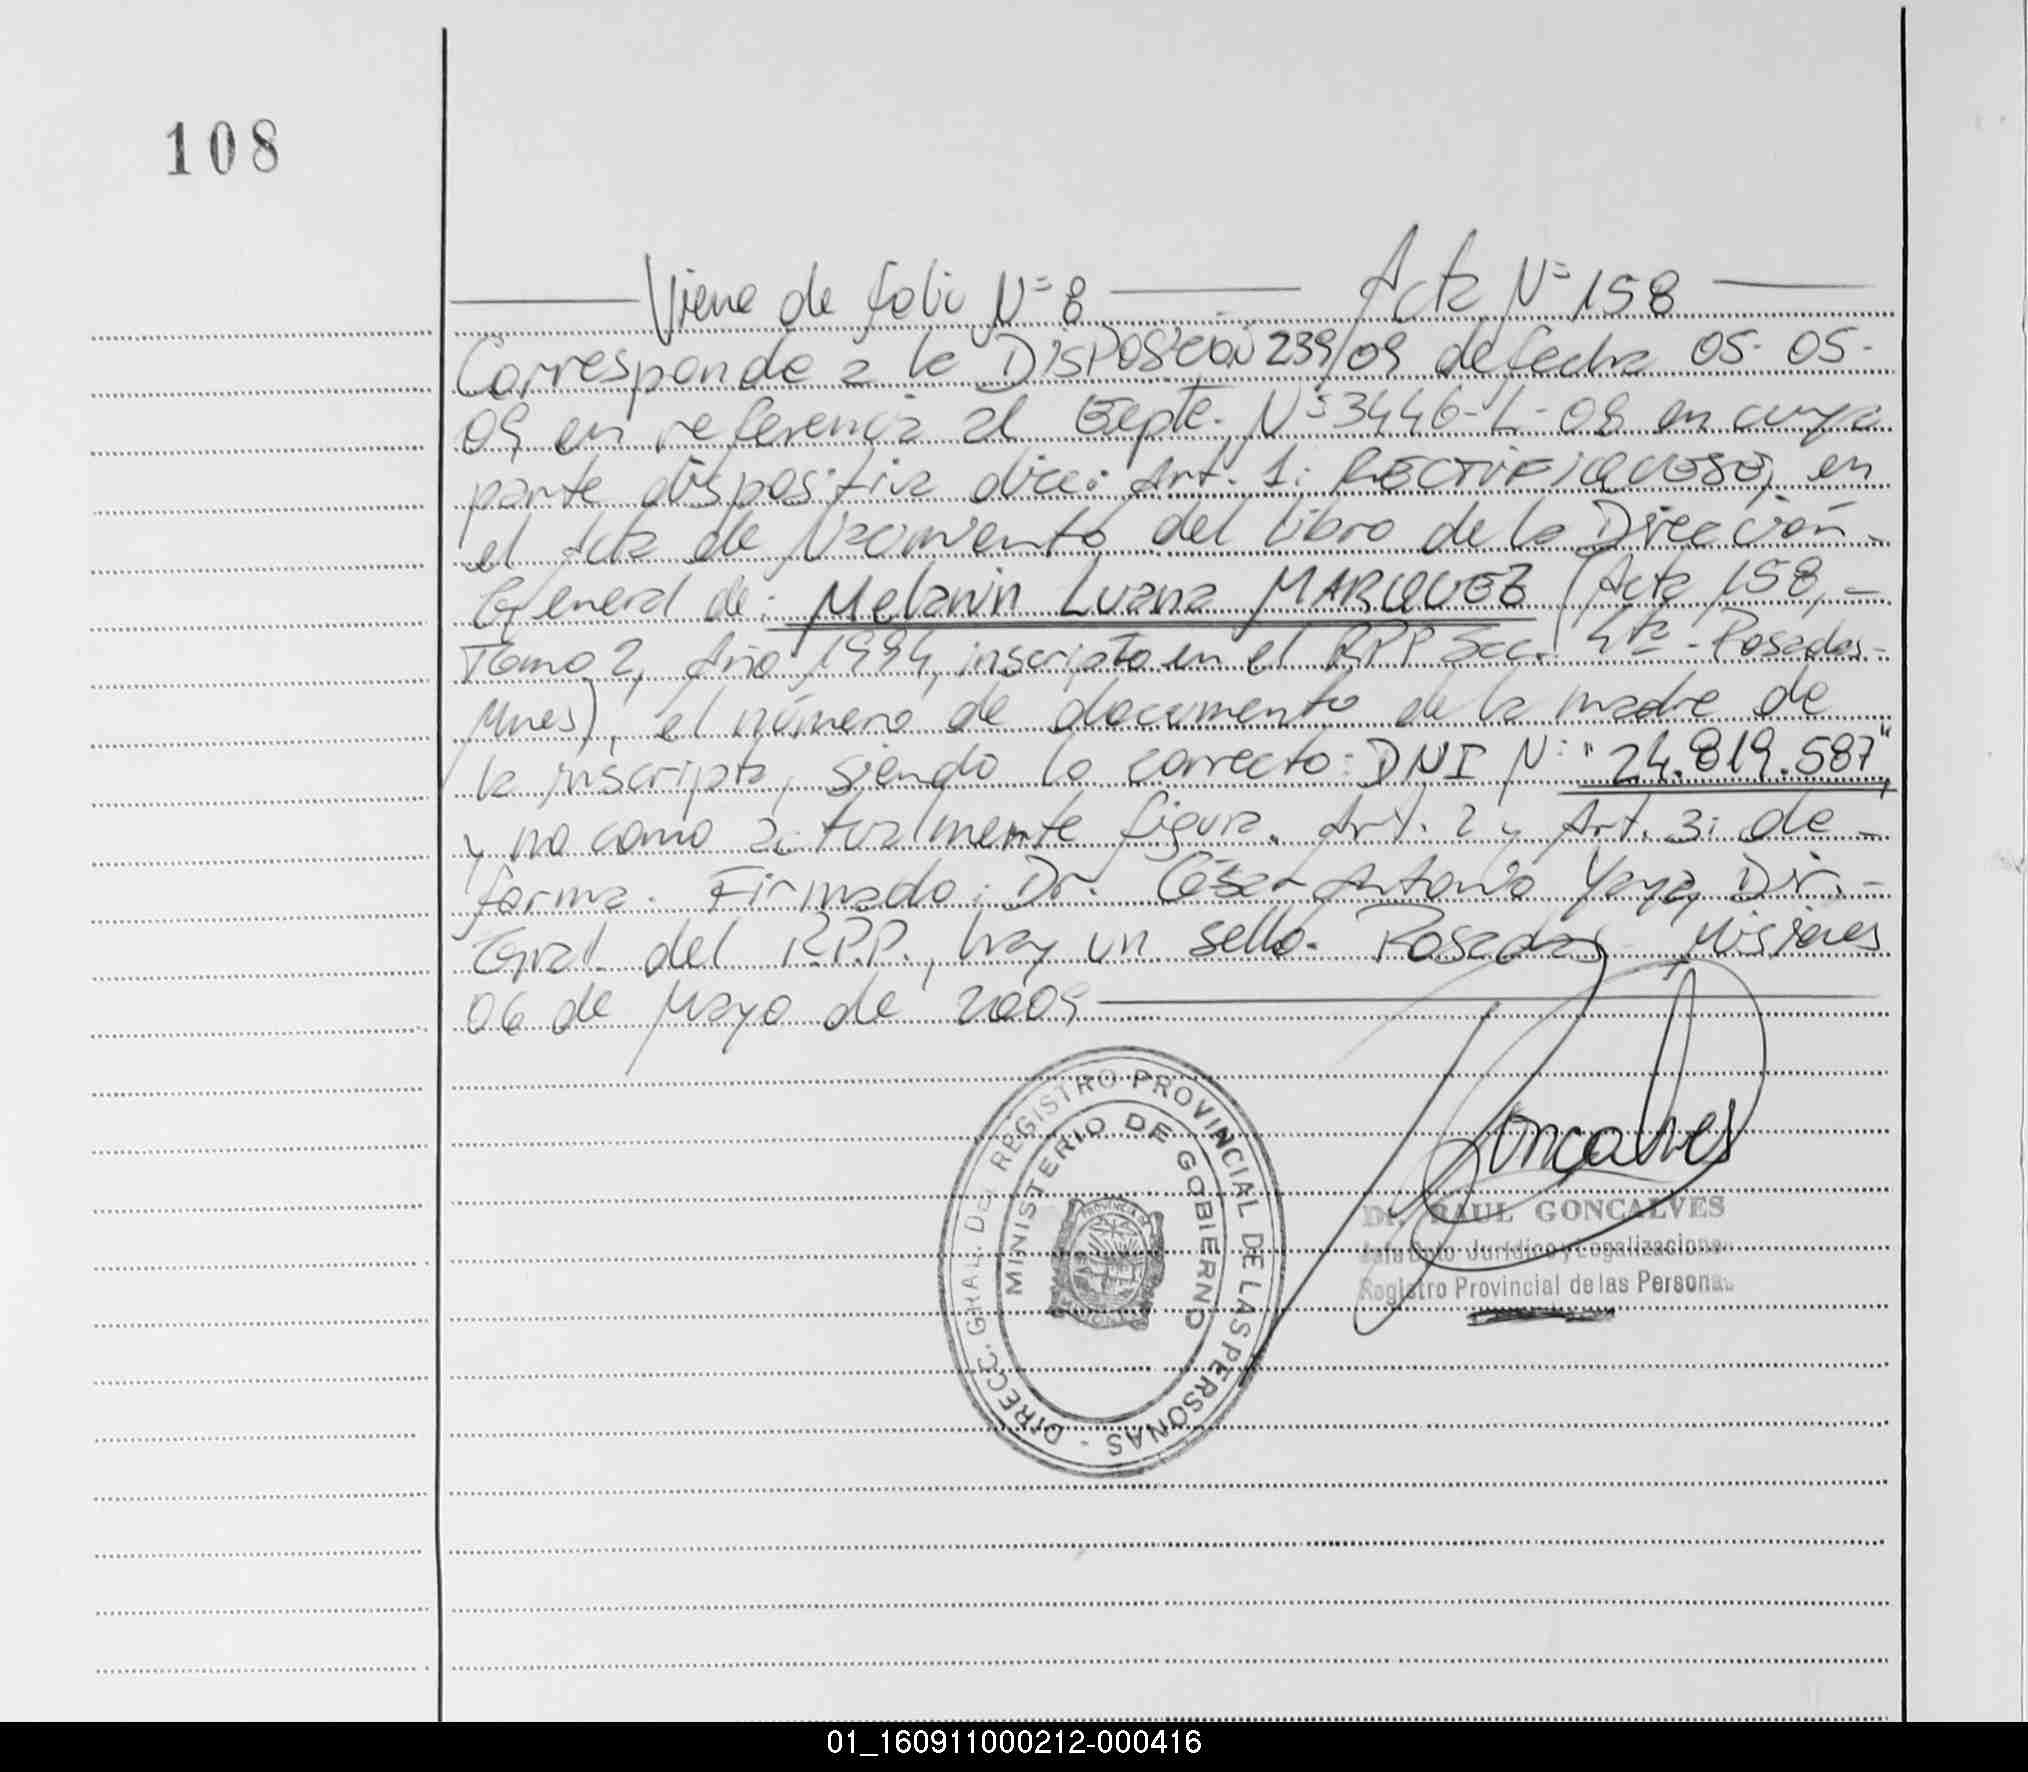 108
Viene de folio N° 8 Acta N° 158
Corresponde a la DISPOSICION 239/09 de fecha 05-05-
09 en referencia al Expte. N° 3446-L-08 en cuya
parte dispositiva dice: Art. 1: RECTIFIQUESE, en
el Acta de Nacimiento del libro de la Dirección
General de: Melanin Luana MARQUEZ (Acta 158, -
Tomo 2, Año 1994, inscripto en el RPP Sec. 4ta - Posadas -
Mnes), el número de documento de la madre de
la inscripta, siendo lo correcto: DNI N: "24.819.587",
y no como actualmente figura. Art. 2 y Art. 3: de -
forma. Firmado: Dr. César Antonio Yaya, Dir. -
Gral. del R.P.P., hay un sello. Posadas - Misiones
06 de Mayo de 2009
DIRECC. GRAL. DEL REGISTRO PROVINCIAL DE LAS PERSONAS -
MINISTERIO DE GOBIERNO
PROVINCIA DE
MISIONES
Goncalves
Dr. RAUL GONCALVES
Jefe Dpto Jurídico y Legalizaciones
Registro Provincial de las Personas
01_160911000212-000416